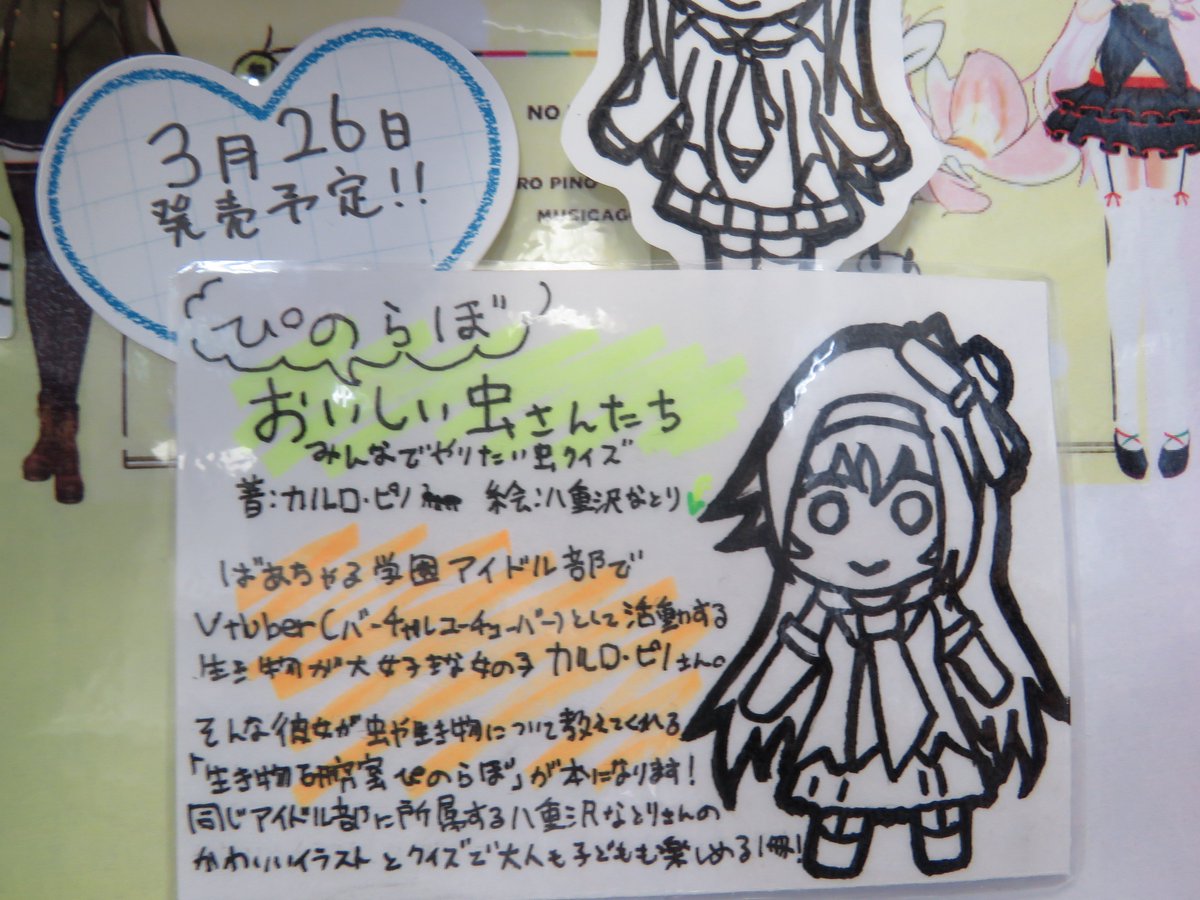 3月26日
発売予定!!
NO
RO PINO
MUSICAG
ぴのらぼ
おいしい虫さんたち
みんなでやりたい虫クイズ
著:カルロ・ピノ 絵:八重沢なとり
ばあちゃる学園アイドル部で
Vtuber(バーチャルユーチューバー)として活動する
生き物が大好きな女の子 カルロ・ピノさん。
そんな彼女が虫や生き物について教えてくれる
「生き物研究室 ぴのらぼ」が本になります!
同じアイドル部に所属する八重沢なとりさんの
かわいいイラストとクイズで大人も子どもも楽しめる1冊!